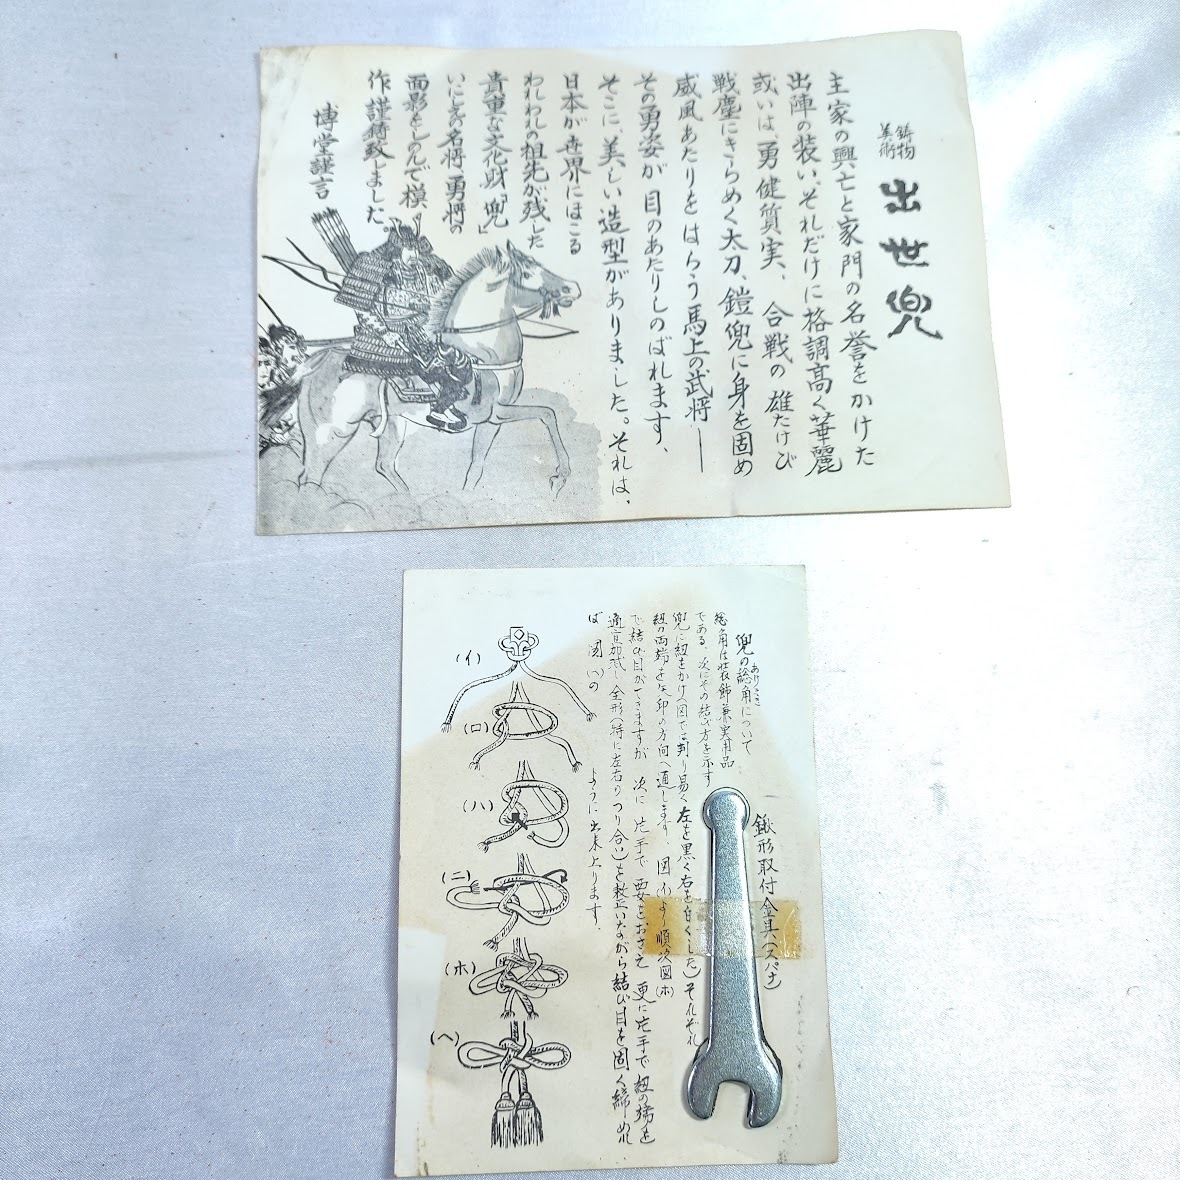 鋳物
美術
出世兜
主家の興亡と家門の名誉をかけた
出陣の装い、それだけに格調高く華麗
或いは、勇健質実、合戦の雄たけび
戦塵にきらめく太刀、鎧兜に身を固め
威風あたりをはらう馬上の武将──
その勇姿が目のあたりしのばれます、
そこに、美しい造型がありました。それは、
日本が世界にほこる
われわれの祖先が残した
貴重な文化財「兜」
いにしえの名将、勇将の
面影をしのんで模
作謹鋳致しました。
博堂謹言
兜の総角について
あげまき
総角は装飾兼実用品
である、次にその結び方を示す
兜に紐をかけ(図では判り易く左を黒く右を白くした)それぞれ
紐の両端を矢印の方向へ通します、図(イ)より順次図(ホ)
で結び目ができますが 次に片手で要をおさえ更に片手で紐の端を
適宜加減し全形(特に左右のつり合い)を整いながら結び目を固く締めれ
ば図(ヘ)の
ように出来上ります。
(イ)
(ロ)
(ハ)
(ニ)
(ホ)
(ヘ)
鍬形取付金具(スパナ)